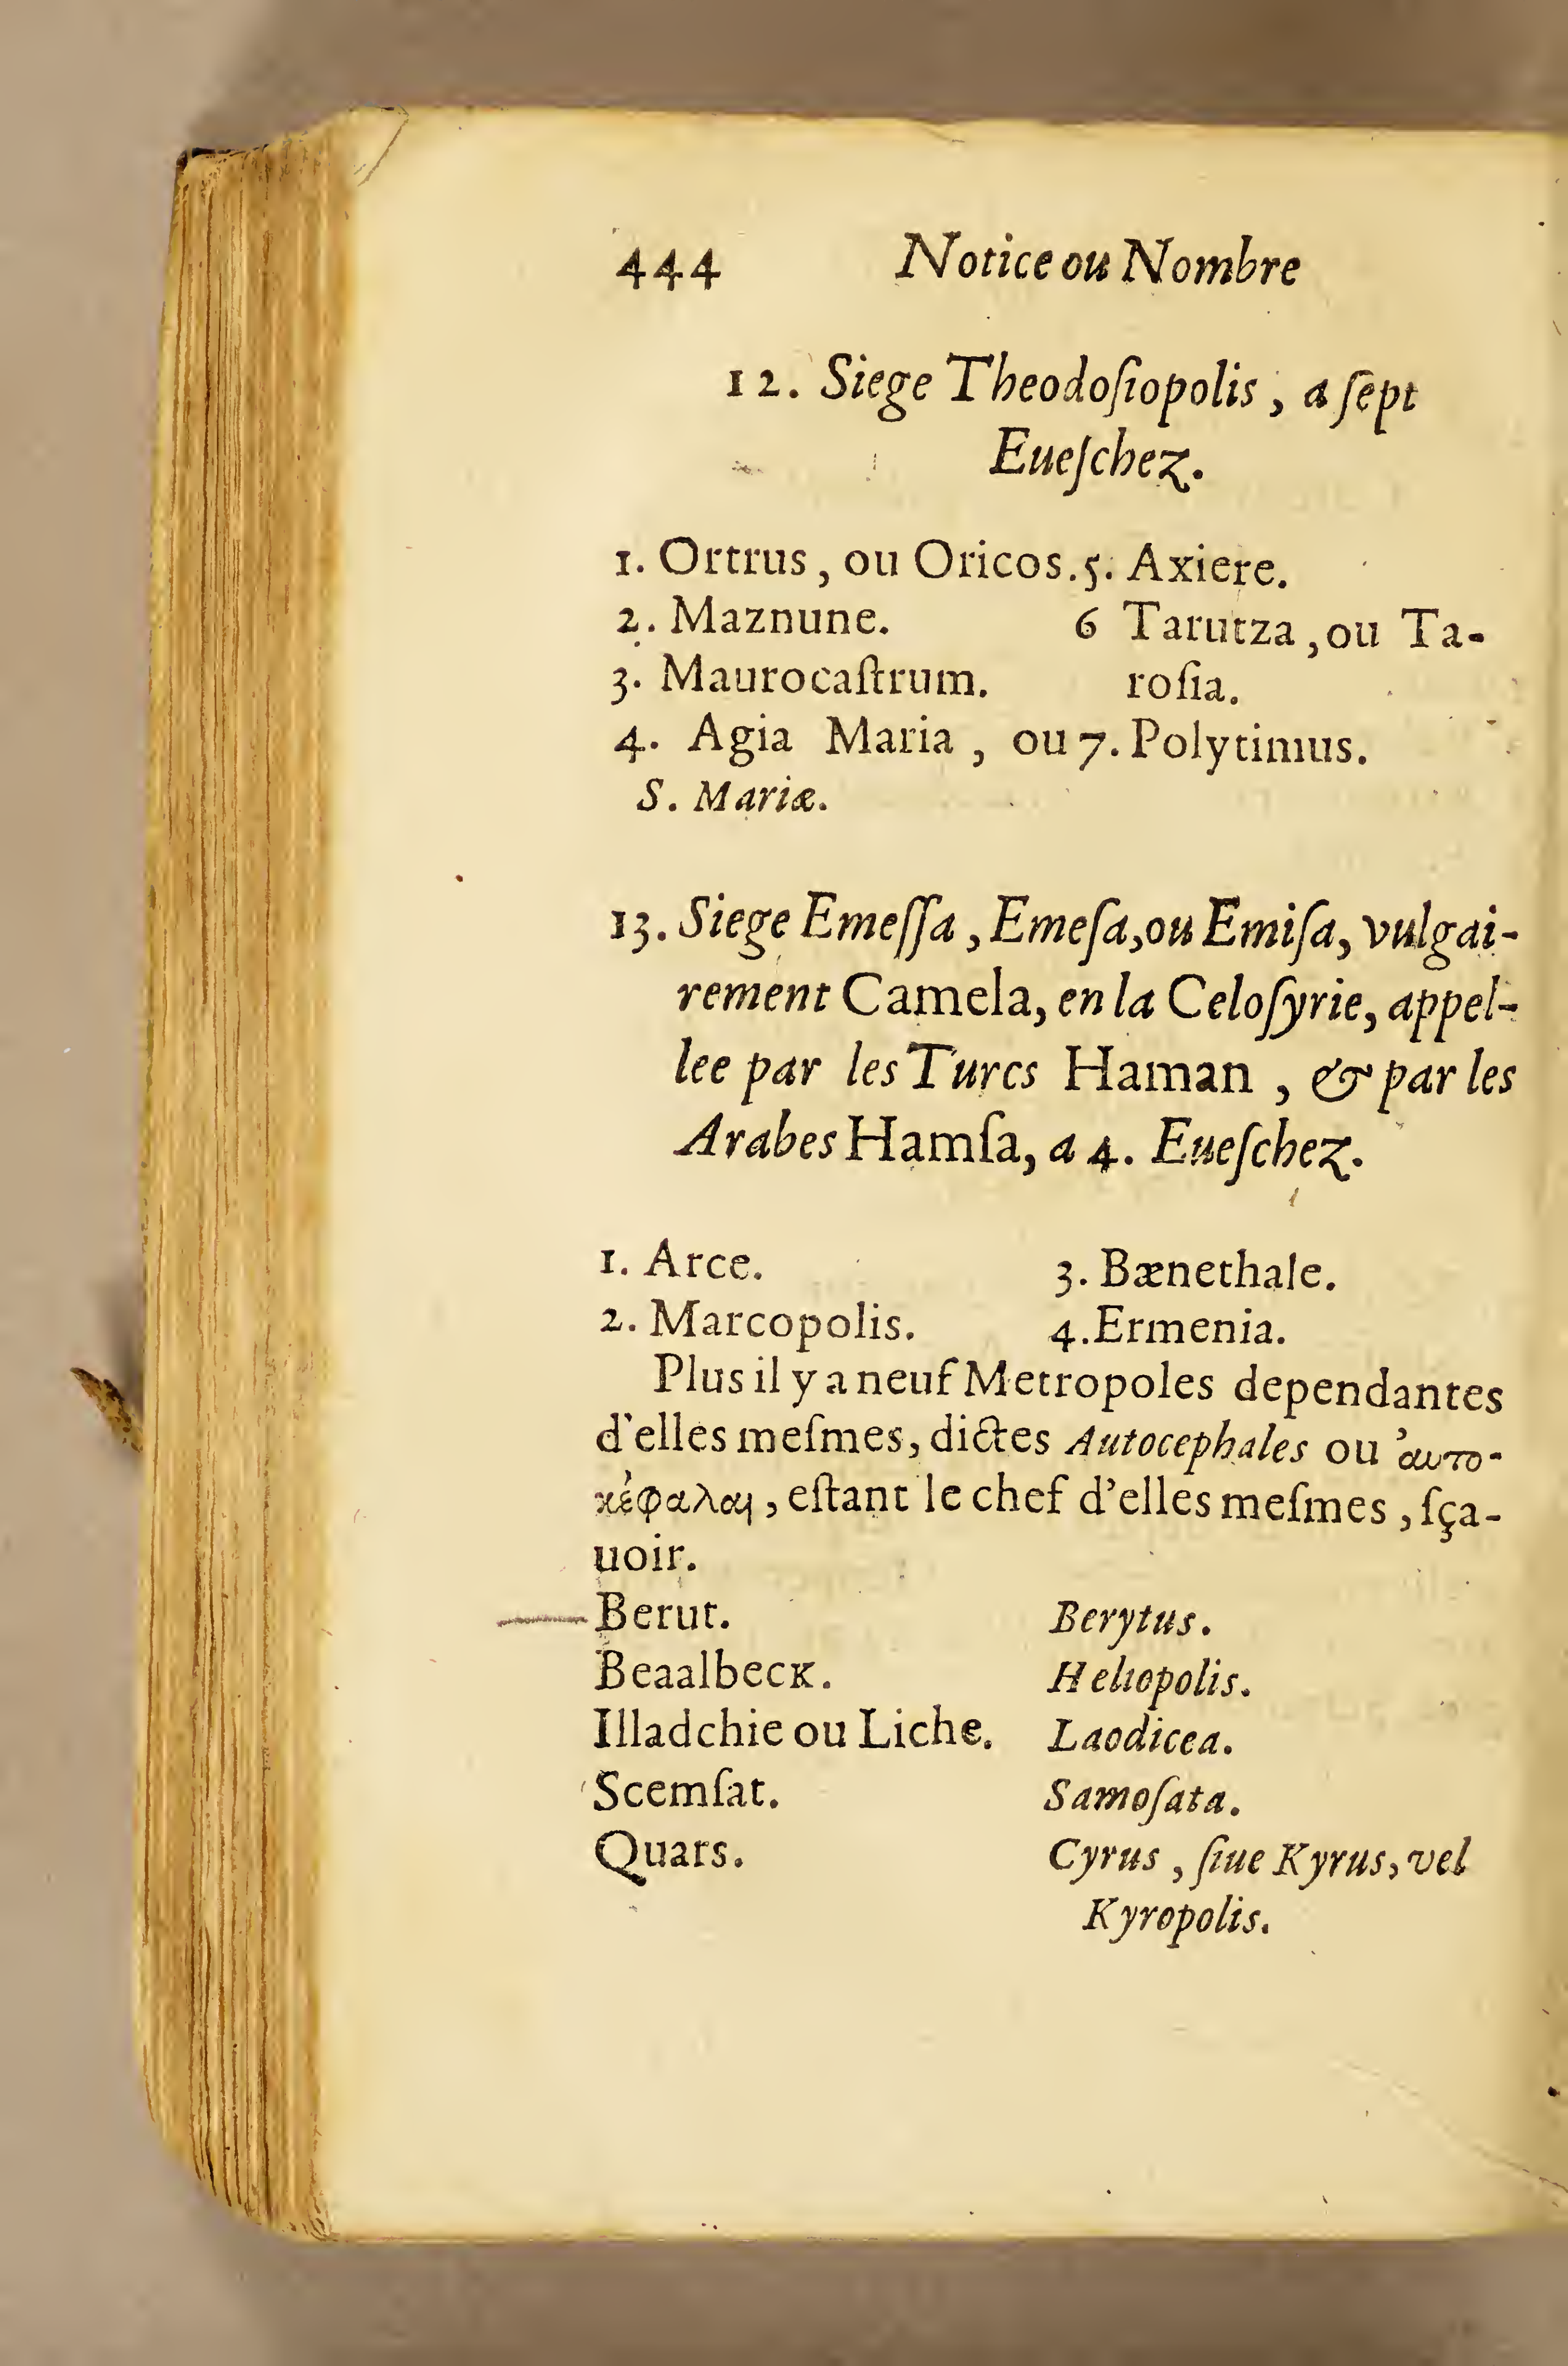 444 Notice ou Nombre
12. Siege Theodoſiopolis, a ſept
Eueſchez.
1. Ortrus, ou Oricos. 5. Axiere.
2. Maznune. 6 Tarutza, ou Ta-
3. Maurocaſtrum. roſia.
4. Agia Maria, ou 7. Polytimus.
S. Mariæ.
13. Siege Emeſſa, Emeſa, ou Emiſa, vulgai-
rement Camela, en la Celoſyrie, appel-
lee par les Turcs Haman, & par les
Arabes Hamſa, a 4. Eueſchez.
1. Arce. 3. Bænethale.
2. Marcopolis. 4. Ermenia.
Plus il y a neuf Metropoles dependantes
d'elles meſmes, dictes Autocephales ou ἀυτο-
κέφαλαι, eſtant le chef d'elles meſmes, ſça-
uoir.
Berut. Berytus.
Beaalbeck. Heliopolis.
Illadchie ou Liche. Laodicea.
Scemſat. Samoſata.
Quars. Cyrus, ſiue Kyrus, vel
Kyropolis.